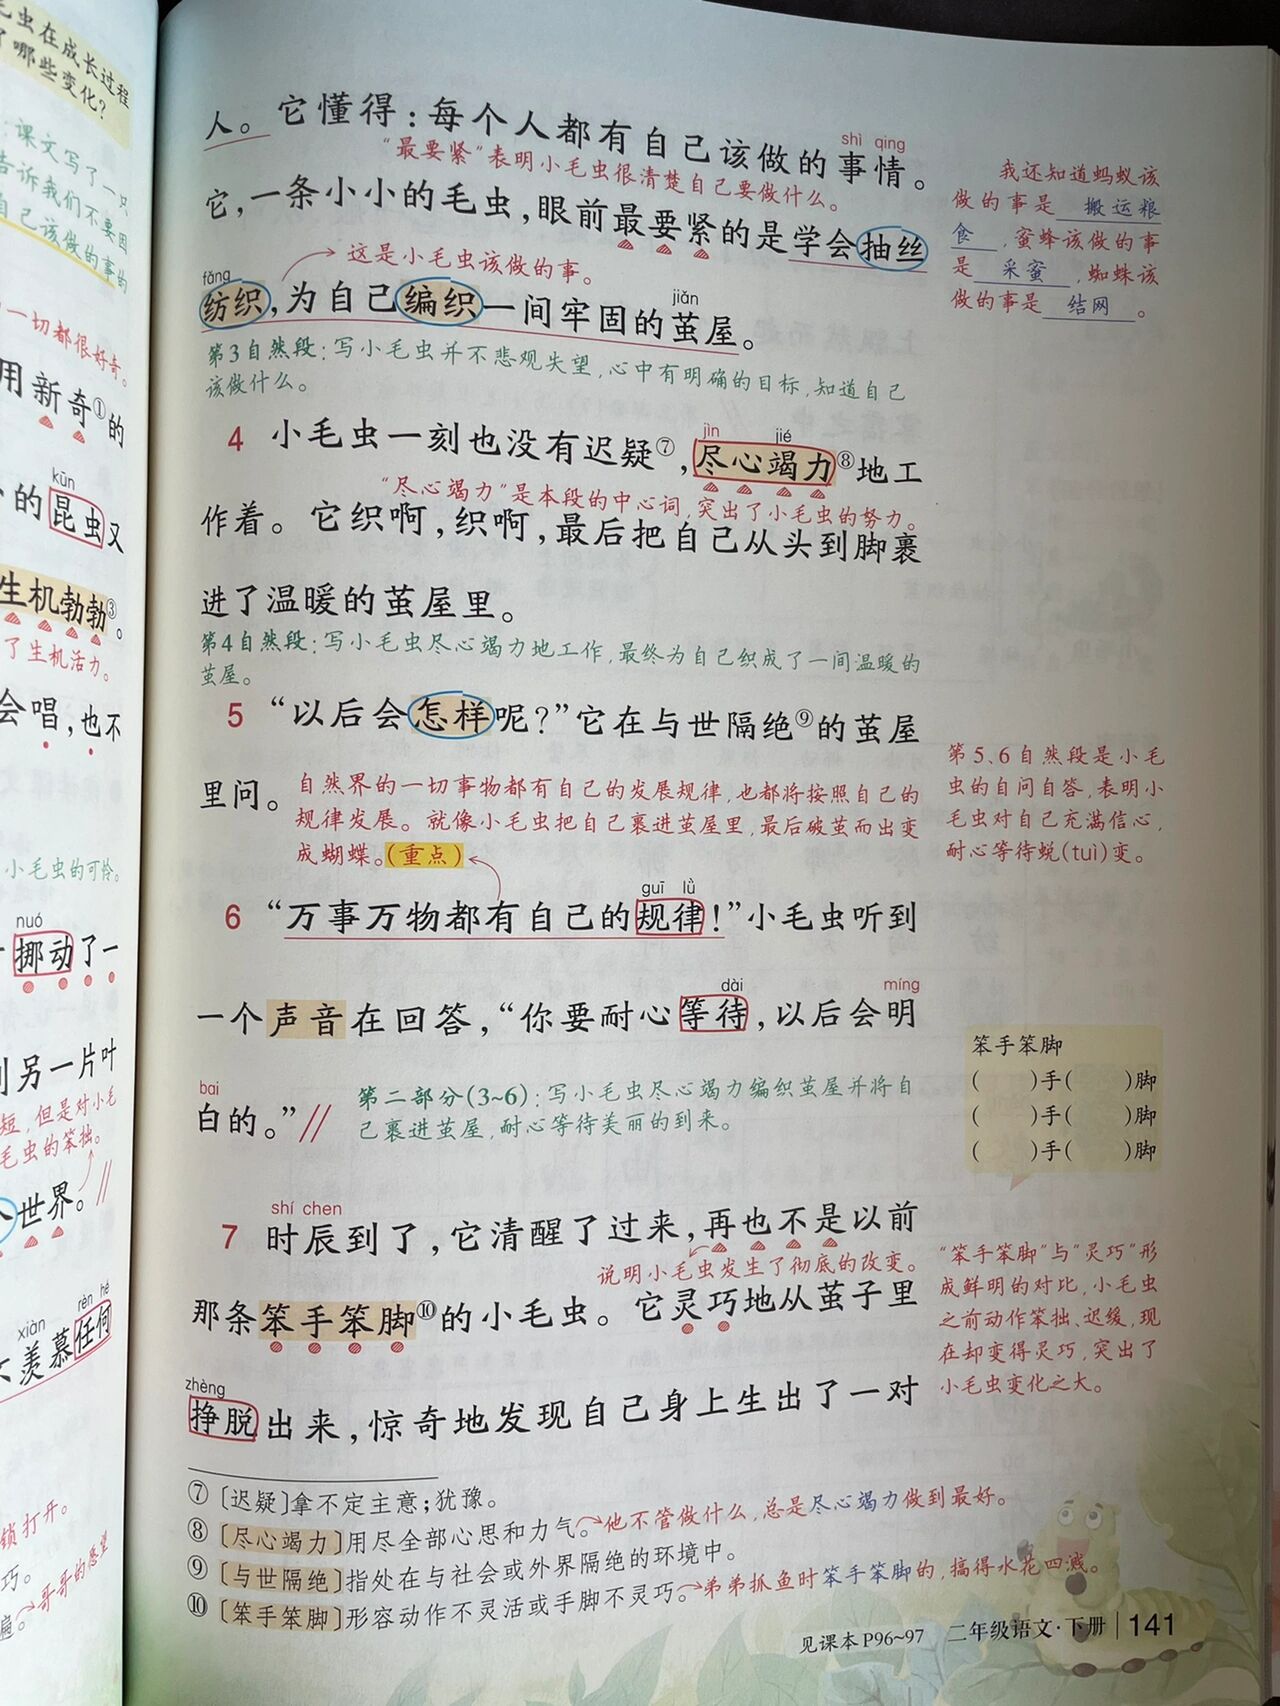 毛虫在成长过程
了哪些变化？
：课文写了一只
告诉我们不要因
自己该做的事的
一切都很好奇。
用新奇①的
kūn
的昆虫又
生机勃勃③。
了生机活力。
会唱，也不
小毛虫的可怜。
nuó
挪动了一
到另一片叶
短，但是对小毛
毛虫的笨拙。
世界。//
rèn hé
xiàn
羡慕任何
锁打开。
巧。
遍。→哥哥的愿望
人。它懂得：每个人都有自己该做的事情。
shì qing
“最要紧”表明小毛虫很清楚自己要做什么。
它，一条小小的毛虫，眼前最要紧的是学会抽丝
这是小毛虫该做的事。
fǎng
jiǎn
纺织，为自己编织一间牢固的茧屋。
第3自然段：写小毛虫并不悲观失望，心中有明确的目标，知道自己
该做什么。
jìn jié
4 小毛虫一刻也没有迟疑⑦，尽心竭力⑧地工
“尽心竭力”是本段的中心词，突出了小毛虫的努力。
作着。它织啊，织啊，最后把自己从头到脚裹
进了温暖的茧屋里。
第4自然段：写小毛虫尽心竭力地工作，最终为自己织成了一间温暖的
茧屋。
5 “以后会怎样呢？”它在与世隔绝⑨的茧屋
里问。
自然界的一切事物都有自己的发展规律，也都将按照自己的
规律发展。就像小毛虫把自己裹进茧屋里，最后破茧而出变
成蝴蝶。（重点）
guī lǜ
6 “万事万物都有自己的规律！”小毛虫听到
dài míng
一个声音在回答，“你要耐心等待，以后会明
bai
白的。”//
第二部分（3~6）：写小毛虫尽心竭力编织茧屋并将自
己裹进茧屋，耐心等待美丽的到来。
shí chen
7 时辰到了，它清醒了过来，再也不是以前
说明小毛虫发生了彻底的改变。
那条笨手笨脚⑩的小毛虫。它灵巧地从茧子里
zhèng
挣脱出来，惊奇地发现自己身上生出了一对
我还知道蚂蚁该
做的事是 搬运粮
食 ，蜜蜂该做的事
是 采蜜 ，蜘蛛该
做的事是 结网 。
第5、6自然段是小毛
虫的自问自答，表明小
毛虫对自己充满信心，
耐心等待蜕(tuì)变。
笨手笨脚
（ ）手（ ）脚
（ ）手（ ）脚
（ ）手（ ）脚
“笨手笨脚”与“灵巧”形
成鲜明的对比，小毛虫
之前动作笨拙、迟缓，现
在却变得灵巧，突出了
小毛虫变化之大。
⑦〔迟疑〕拿不定主意；犹豫。
⑧〔尽心竭力〕用尽全部心思和力气。→他不管做什么，总是尽心竭力做到最好。
⑨〔与世隔绝〕指处在与社会或外界隔绝的环境中。
⑩〔笨手笨脚〕形容动作不灵活或手脚不灵巧。→弟弟抓鱼时笨手笨脚的，搞得水花四溅。
见课本P96~97 二年级语文·下册 141